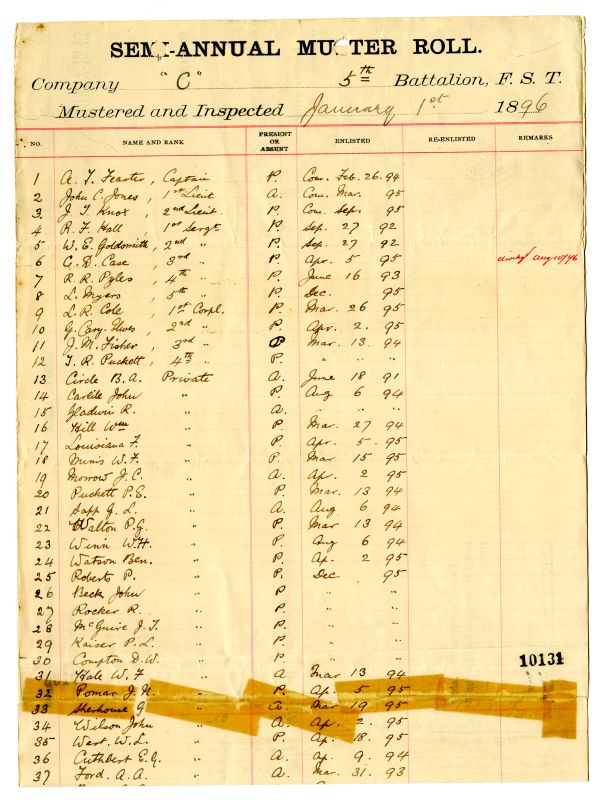 SEMI-ANNUAL MUSTER ROLL.
Company "C" 5th Battalion, F. S. T.
Mustered and Inspected January 1st 1896
NO. NAME AND RANK PRESENT OR ABSENT ENLISTED RE-ENLISTED REMARKS
1 A. T. Feaster, Captain P. Com. Feb. 26. 94
2 John C. Jones, 1st Lieut A. Com. Mar. 95
3. J. T. Knox, 2nd Lieut. P. Com. Sep. 95
4 R. F. Hall, 1st Sergt P. Sep. 27 92
5 W. E. Goldsmith, 2nd " P. Sep. 27 92
6 G. D. Case, 3rd " P. Apr. 5 95 Aug 10/96
7 R. R. Pyles, 4th " P. June 16 93
8 L. Myers, 5th " P. Dec. 95
9 L. R. Cole, 1st Corpl. P. Mar. 26 95
10 G. Cary. Elwes, 2nd " P. Apr. 2. 95
11 J. M. Fisher, 3rd " P Mar. 13. 94
12 T. R. Puckett, 4th " P. " " "
13 Circle B. A. Private A. June 18 91
14 Carlile John " P. Aug 6 94
15 Gladwin R. " A. " " "
16 Hill Wm " P. Mar. 27 94
17 Louisiana F. " P. Apr. 5. 95
18 Mimis W. F. " P. Mar 15 95
19 Morrow J. C. " A. Apr. 2 95
20 Puckett P. E. " P. Mar. 13 94
21 Sapp G. L. " A. Aug 6 94
22 Walton P. G. " P. Mar 13 94
23 Winn W. H. " P. Aug 6 94
24 Watson Ben. " P. Ap. 2 95
25 Roberts P. " P. Dec 95
26 Beck John " P. " "
27 Rocker R. " P. " "
28 McGuire J. T. " P. " "
29 Kaiser P. L. " P. " "
30 Compton D. W. " P. " "
10131
31 Hale W. F " A Mar 13 94
32 Pomar J. N. " P Ap. 5 95
33 Sherhouse G " A Mar 19 95
34 Wilson John " A Apr. 2. 95
35 West. W. L. " P Ap. 18. 95
36 Cuthbert E. G. " A. Ap. 9. 94
37 Ford. A. A. " A. Mar. 31. 93